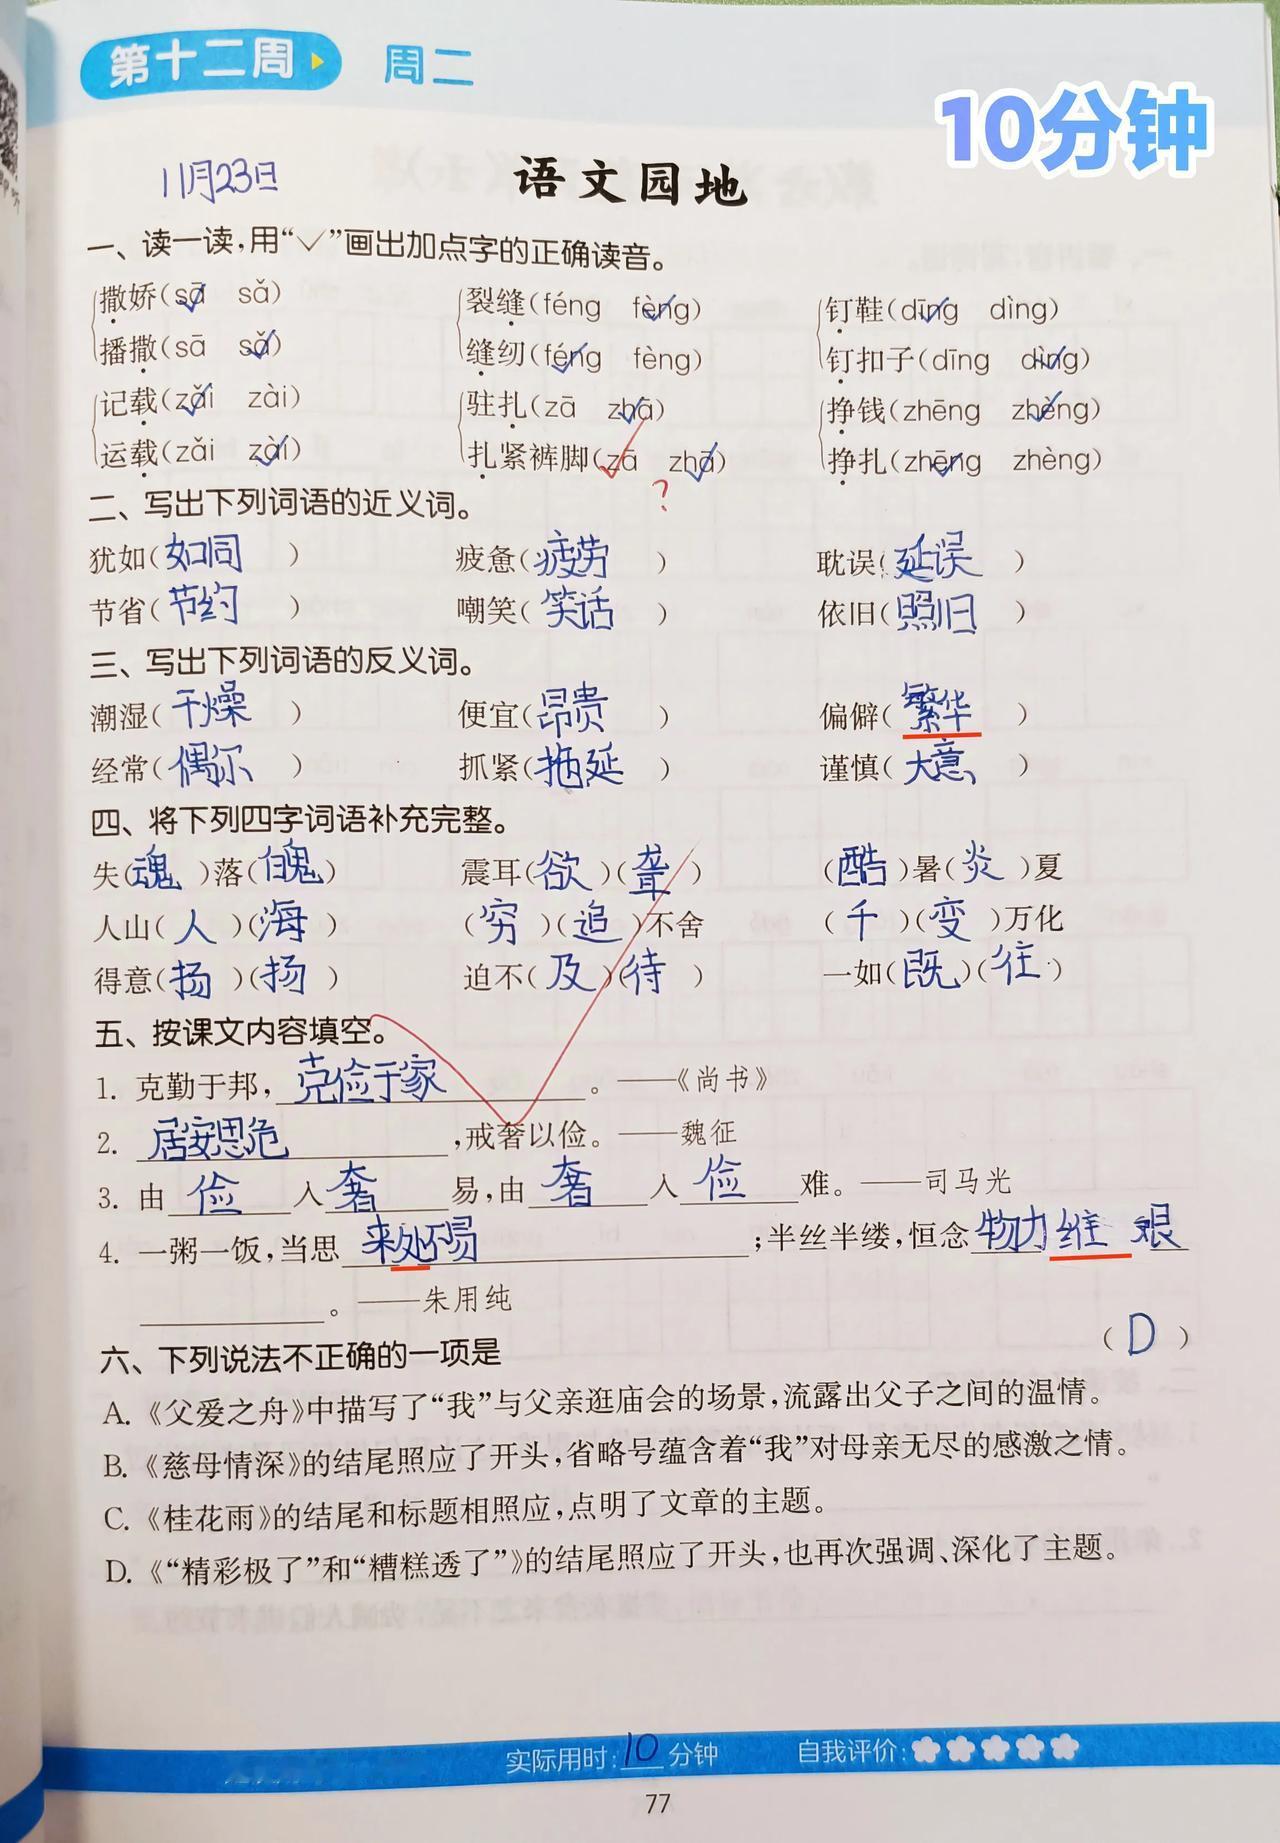 第十二周 周二
10分钟
11月23日 语文园地
一、读一读,用“✓”画出加点字的正确读音。
撒娇(sā sǎ) 裂缝(féng fèng) 钉鞋(dīng dìng)
播撒(sā sǎ) 缝纫(féng fèng) 钉扣子(dīng dìng)
记载(zǎi zài) 驻扎(zā zhā) 挣钱(zhēng zhèng)
运载(zǎi zài) 扎紧裤脚(zā zhā) 挣扎(zhēng zhèng)
?
二、写出下列词语的近义词。
犹如(如同) 疲惫(疲劳) 耽误(延误)
节省(节约) 嘲笑(笑话) 依旧(照旧)
三、写出下列词语的反义词。
潮湿(干燥) 便宜(昂贵) 偏僻(繁华)
经常(偶尔) 抓紧(拖延) 谨慎(大意)
四、将下列四字词语补充完整。
失(魂)落(魄) 震耳(欲)(聋) (酷)暑(炎)夏
人山(人)(海) (穷)(追)不舍 (千)(变)万化
得意(扬)(扬) 迫不(及)(待) 一如(既)(往)
五、按课文内容填空。
1. 克勤于邦,克俭于家。——《尚书》
2. 居安思危,戒奢以俭。——魏征
3. 由俭入奢易,由奢入俭难。——司马光
4. 一粥一饭,当思来处不易;半丝半缕,恒念物力维艰
。——朱用纯
六、下列说法不正确的一项是 (D)
A.《父爱之舟》中描写了“我”与父亲逛庙会的场景,流露出父子之间的温情。
B.《慈母情深》的结尾照应了开头,省略号蕴含着“我”对母亲无尽的感激之情。
C.《桂花雨》的结尾和标题相照应,点明了文章的主题。
D.《“精彩极了”和“糟糕透了”》的结尾照应了开头,也再次强调、深化了主题。
实际用时:10分钟 自我评价:
77